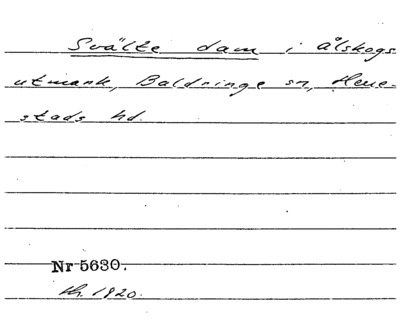 Svälte dam i Ålskogs
utmark, Baldringe sn, Herre-
stads hd.
Nr 5630.
1920.